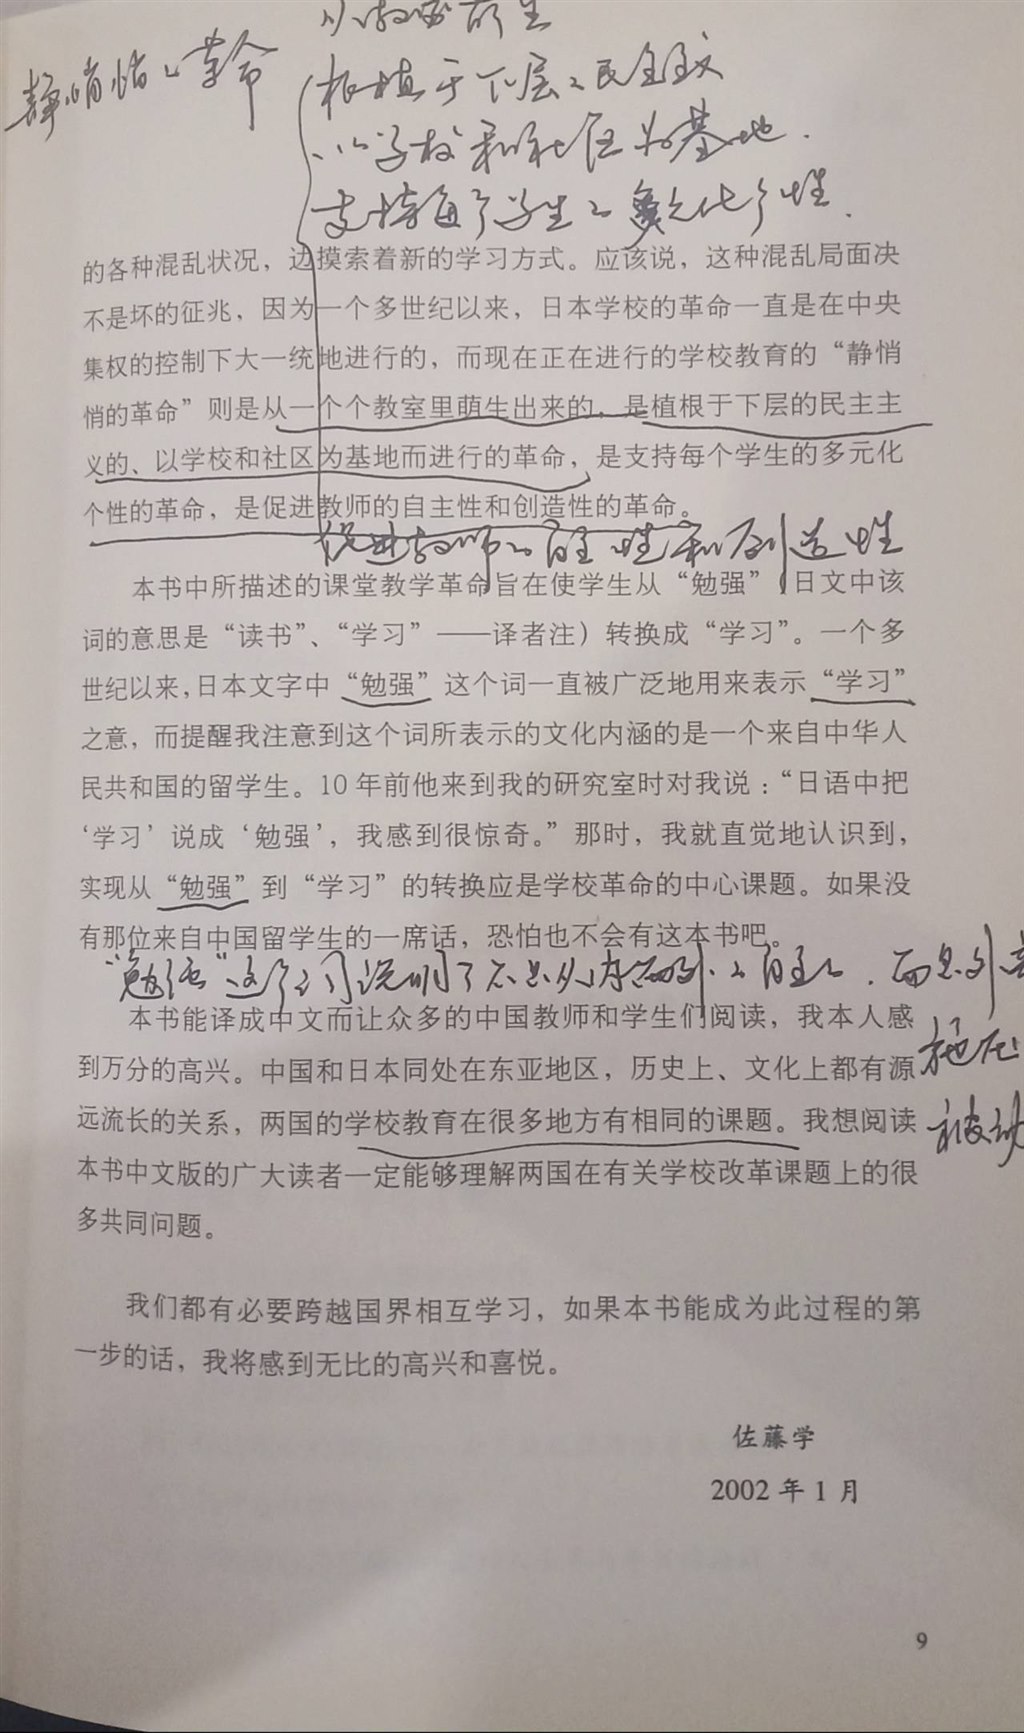 从教室萌生
静悄悄的革命
根植于下层的民主主义
以学校和社区为基地.
支持每个学生的多元化个性.
的各种混乱状况，边摸索着新的学习方式。应该说，这种混乱局面决
不是坏的征兆，因为一个多世纪以来，日本学校的革命一直是在中央
集权的控制下大一统地进行的，而现在正在进行的学校教育的“静悄
悄的革命”则是从一个个教室里萌生出来的，是植根于下层的民主主
义的、以学校和社区为基地而进行的革命，是支持每个学生的多元化
个性的革命，是促进教师的自主性和创造性的革命。
促进教师的自主性和创造性
本书中所描述的课堂教学革命旨在使学生从“勉强”（日文中该
词的意思是“读书”、“学习”——译者注）转换成“学习”。一个多
世纪以来，日本文字中“勉强”这个词一直被广泛地用来表示“学习”
之意，而提醒我注意到这个词所表示的文化内涵的是一个来自中华人
民共和国的留学生。10 年前他来到我的研究室时对我说：“日语中把
‘学习’说成‘勉强’，我感到很惊奇。”那时，我就直觉地认识到，
实现从“勉强”到“学习”的转换应是学校革命的中心课题。如果没
有那位来自中国留学生的一席话，恐怕也不会有这本书吧。
“勉强”这个词说明了不是从内而外的自主的，而是外在
本书能译成中文而让众多的中国教师和学生们阅读，我本人感
到万分的高兴。中国和日本同处在东亚地区，历史上、文化上都有源
施压
远流长的关系，两国的学校教育在很多地方有相同的课题。我想阅读
被动
本书中文版的广大读者一定能够理解两国在有关学校改革课题上的很
多共同问题。
我们都有必要跨越国界相互学习，如果本书能成为此过程的第
一步的话，我将感到无比的高兴和喜悦。
佐藤学
2002 年 1 月
9